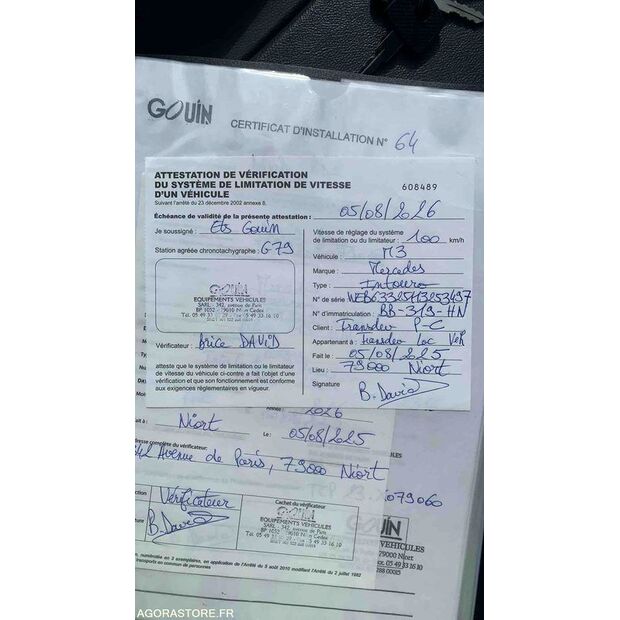 GOUIN
CERTIFICAT D'INSTALLATION N° 64
ATTESTATION DE VÉRIFICATION
DU SYSTÈME DE LIMITATION DE VITESSE
D'UN VÉHICULE
608489
Suivant l'arrêté du 23 décembre 2002 annexe 8.
Échéance de validité de la présente attestation : 05/08/2026
Je soussigné : Ets Gouin
Station agréée chronotachygraphe : G79
GOUIN
EQUIPEMENTS VEHICULES
SARL - 342, avenue de Paris
BP 1052 - 79010 Niort Cedex
Vérificateur : Brice DAVID
atteste que le système de limitation ou le limiteur
de vitesse du véhicule ci-contre a fait l'objet d'une
vérification et que son fonctionnement est conforme
aux exigences réglementaires en vigueur.
Vitesse de réglage du système
de limitation ou du limiteur : 100 km/h
Véhicule : M3
Marque : Mercedes
Type : Intouro
N° de série : WEB63325113253497
N° d'immatriculation : BB-319-HN
Client : Transdev P-C
Appartenant à : Transdev Loc Veh
Fait le : 05/08/2025
Lieu : 79000 Niort
Signature
B. David
2026
Niort
Le : 05/08/2025
complète du vérificateur:
Avenue de Paris, 79000 Niort
079060
Vérificateur
B. David
Cachet du vérificateur
GOUIN
EQUIPEMENTS VEHICULES
SARL - 342, avenue de Paris
VEHICULES
79000 Niort
numérotée en 3 exemplaires, en application de l'Arrêté du 5 août 2010 modifiant l'Arrêté du 2 juillet 1982
transports en commun de personnes
AGORASTORE.FR